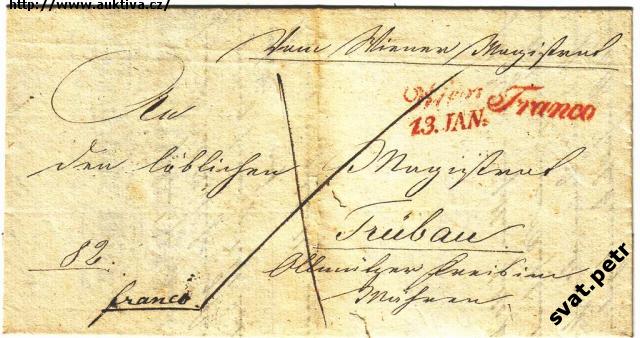 http://www.auktiva.cz/
Vom Wiener Magistrat
Wien Franco
13. JAN.
An
den löblichen Magistrat
Trübau
82.
Ollmützer Kreis im
franco.
Mähren
svat.petr